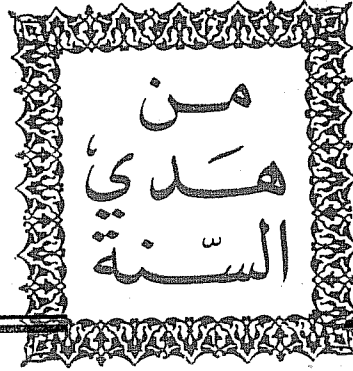 من
هَدي
السّنة